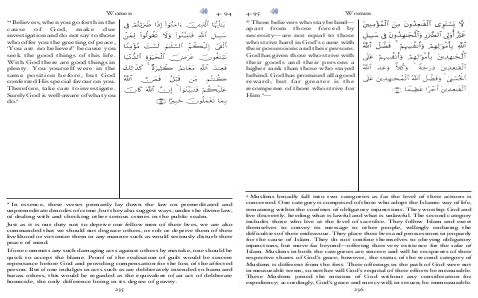 Women
4: 94
94 Believers, when you go forth in the
cause of God, make due
investigation and do not say to those
who offer you the greeting of peace,
'You are no believer' because you
seek the good things of this life.
With God there are good things in
plenty. You yourself were in the
same position before, but God
conferred His special favour on you.
Therefore, take care to investigate.
Surely God is well-aware of what you
do.a
يَٰٓأَيُّهَا ٱلَّذِينَ ءَامَنُوٓا۟ إِذَا ضَرَبْتُمْ فِى
سَبِيلِ ٱللَّهِ فَتَبَيَّنُوا۟ وَلَا تَقُولُوا۟ لِمَنْ
أَلْقَىٰٓ إِلَيْكُمُ ٱلسَّلَٰمَ لَسْتَ مُؤْمِنًا
تَبْتَغُونَ عَرَضَ ٱلْحَيَوٰةِ ٱلدُّنْيَا
فَعِندَ ٱللَّهِ مَغَانِمُ كَثِيرَةٌ كَذَٰلِكَ
كُنتُم مِّن قَبْلُ فَمَنَّ ٱللَّهُ
عَلَيْكُمْ فَتَبَيَّنُوٓا۟ إِنَّ ٱللَّهَ كَانَ
بِمَا تَعْمَلُونَ خَبِيرًا
a In essence, these verses primarily lay down the law on premeditated and
unpremeditated deeds of crime, but they also suggest ways, under the divine law,
of dealing with and checking other serious crimes in the public realm.
Just as it is our duty not to deprive our fellow men of their lives, we are also
commanded that we should not disgrace others, or rob or deprive them of their
livelihood or victimize them in any manner such as would seriously disturb their
peace of mind.
If one commits any such damaging acts against others by mistake, one should be
quick to accept the blame. Proof of the realization of guilt would be sincere
repentance before God and providing compensation for the loss of the affected
person. But if one indulges in acts such as are deliberately intended to harm and
harass others, this would be regarded as the equivalent of an act of deliberate
homicide, the only difference being in its degree of gravity.
4: 95
Women
95 Those believers who stay behind—
apart from those forced by
necessity—are not equal to those
who strive hard in God's cause with
their possessions and their persons.
God has given those who strive with
their goods and their persons a
higher rank than those who stayed
behind. God has promised all a good
reward; but far greater is the
recompense of those who strive for
Him—a
لَّا يَسْتَوِى ٱلْقَٰعِدُونَ مِنَ ٱلْمُؤْمِنِينَ
غَيْرُ أُو۟لِى ٱلضَّرَرِ وَٱلْمُجَٰهِدُونَ فِى سَبِيلِ
ٱللَّهِ بِأَمْوَٰلِهِمْ وَأَنفُسِهِمْ فَضَّلَ ٱللَّهُ
ٱلْمُجَٰهِدِينَ بِأَمْوَٰلِهِمْ وَأَنفُسِهِمْ عَلَى
ٱلْقَٰعِدِينَ دَرَجَةً وَكُلًّا وَعَدَ ٱللَّهُ
ٱلْحُسْنَىٰ وَفَضَّلَ ٱللَّهُ ٱلْمُجَٰهِدِينَ عَلَى
ٱلْقَٰعِدِينَ أَجْرًا عَظِيمًا
a Muslims broadly fall into two categories as far the level of their actions is
concerned. One category is comprised of those who adopt the Islamic way of life,
remaining within the confines of obligatory injunctions. They worship God and
live discreetly, heeding what is lawful and what is unlawful. The second category
includes those who live at the level of sacrifice. They follow Islam and rouse
themselves to convey its message to other people, willingly enduring the
difficulties of their endeavour. They place their lives and possessions in jeopardy
for the cause of Islam. They do not confine themselves to obeying obligatory
injunctions, but move far beyond—offering their very existence for the sake of
Islam. Muslims in both the categories are sincere and will be recipients of their
respective shares of God's grace, however, the status of the second category of
Muslims is different from the first. Their offerings in the path of God were not
in measurable terms, so neither will God's requital of their efforts be measurable.
These Muslims joined the mission of God without any consideration for
expediency; accordingly, God's grace and mercy will, in return, be immeasurable.